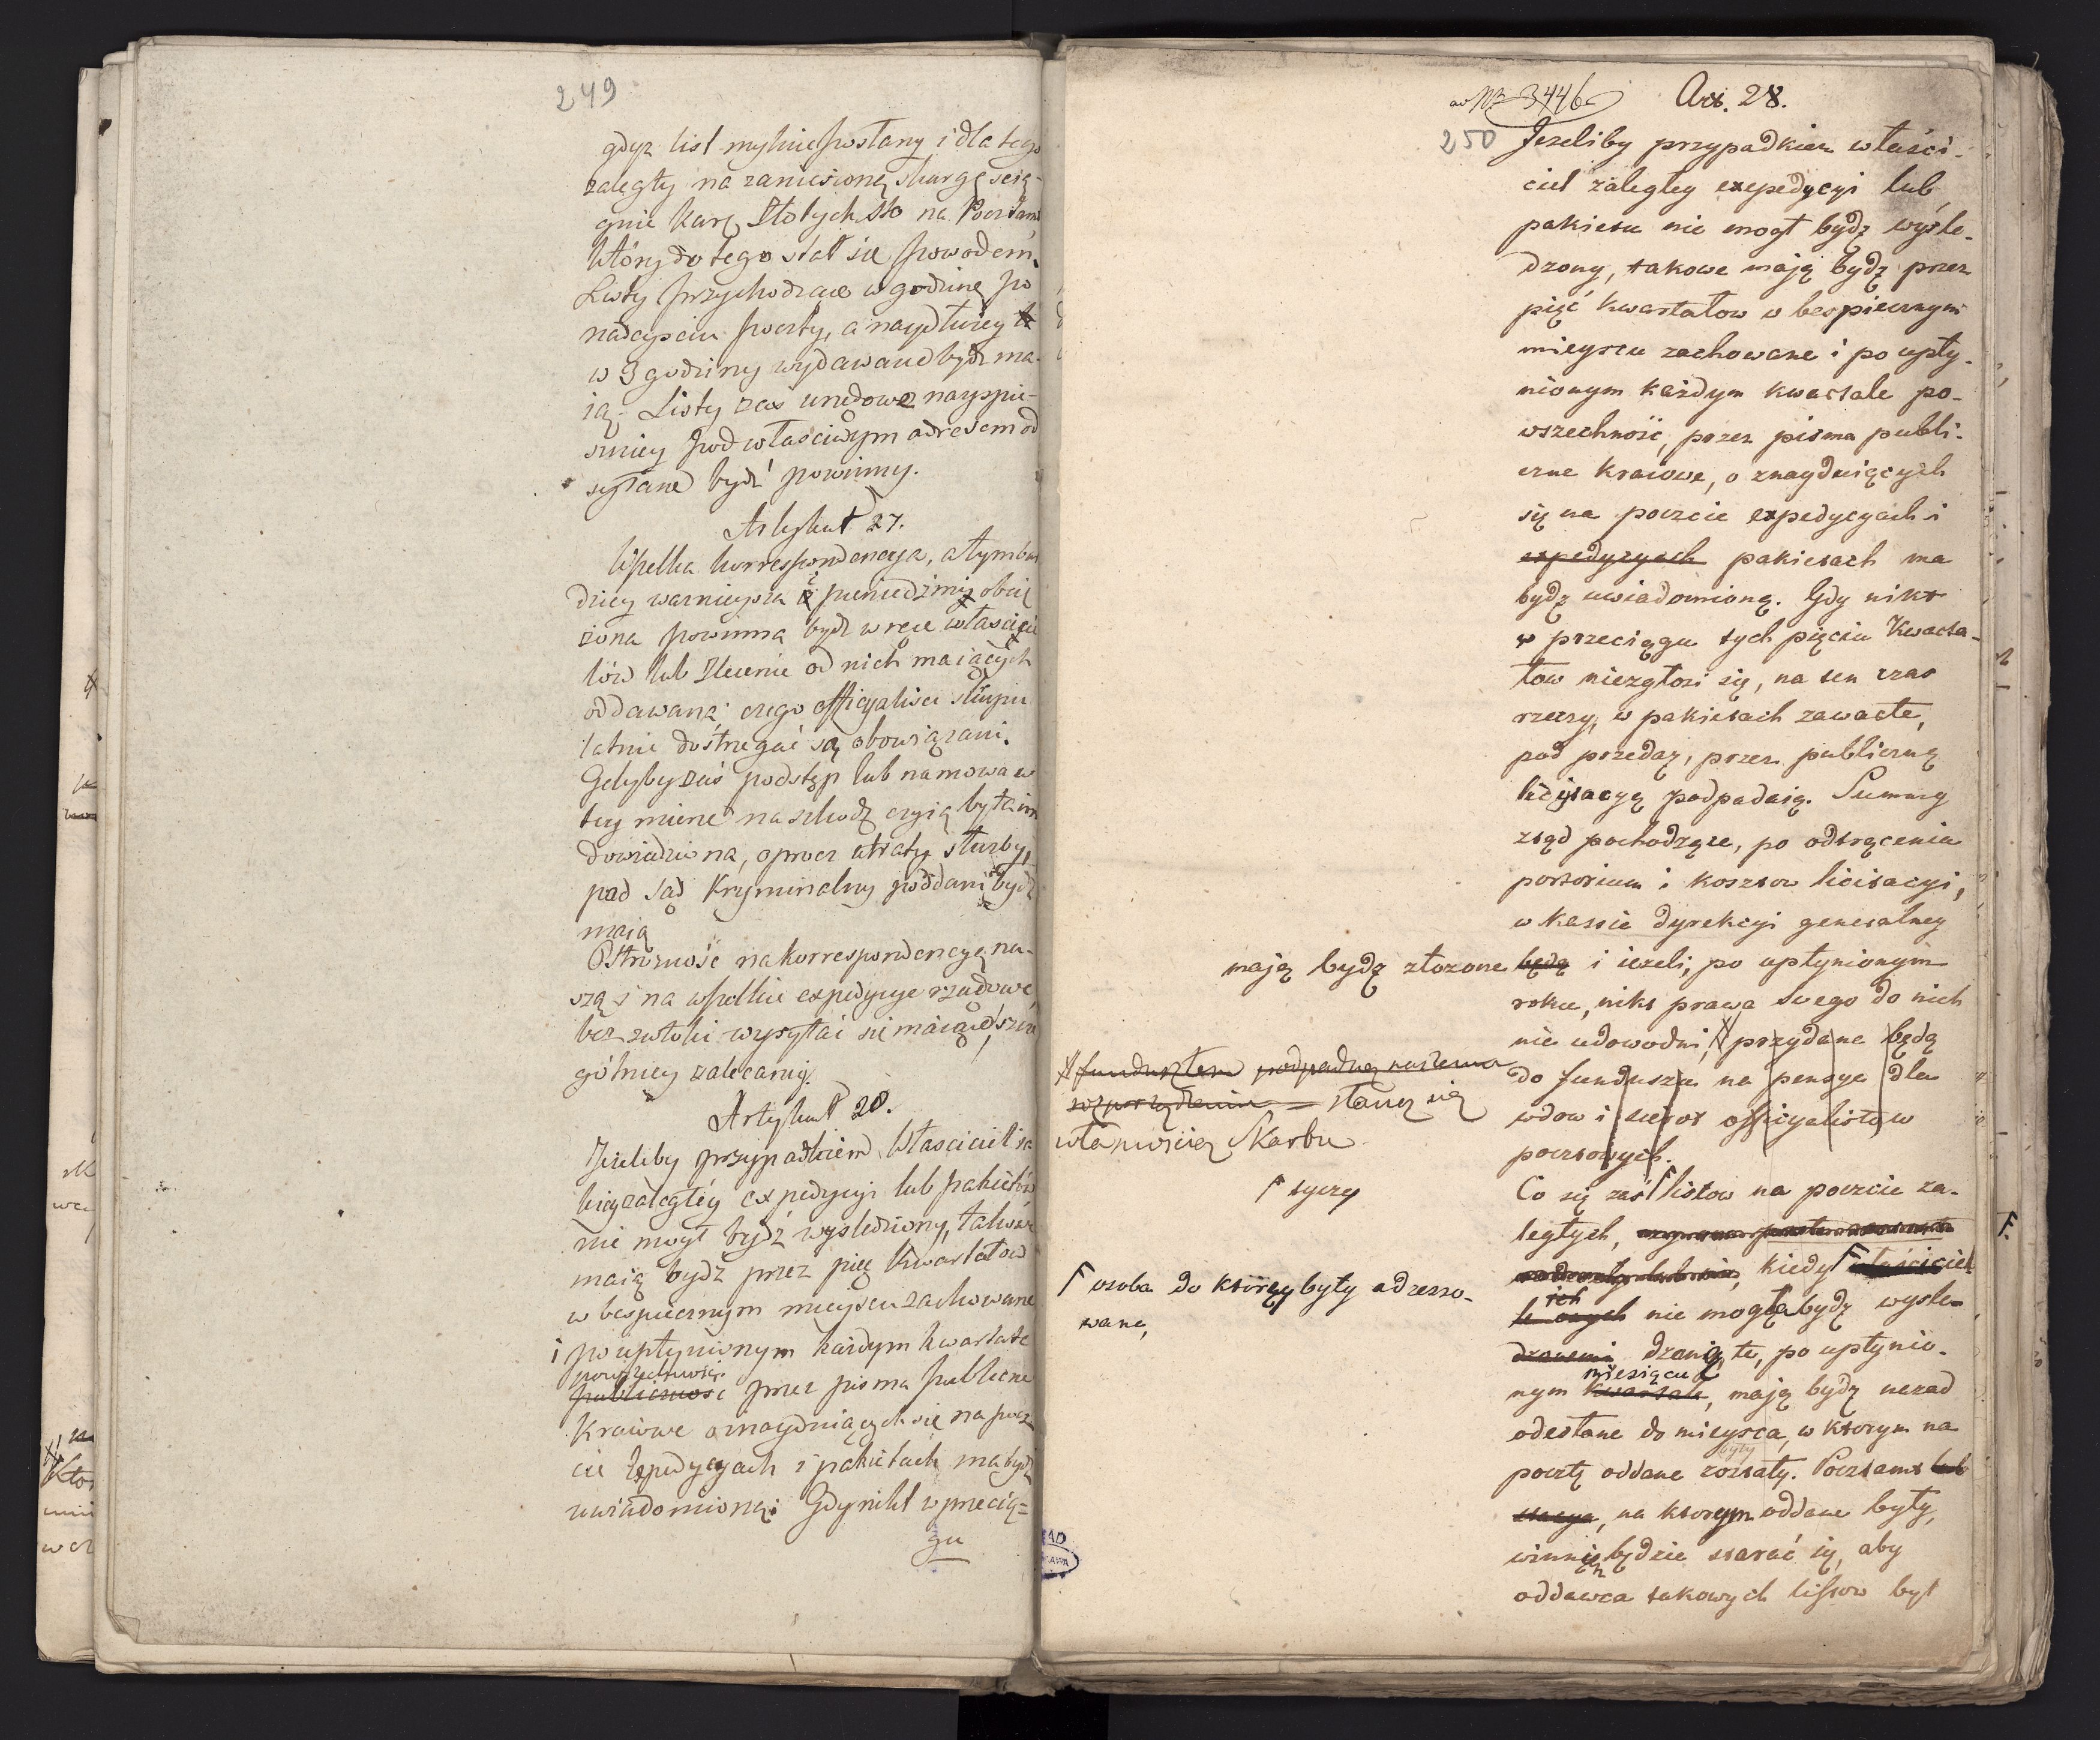 249
gdyż list mylnie posłany i dla tego
zaległy na zaniesioną skargę ścią-
gnie karę Złotych sto na Pocztamt
który do tego stał się powodem.
Listy przychodzące w godzinę po
nadeyściu poczty, a naydłużey
w 3 godziny wydawane bydź ma-
ią. Listy zaś urzędowe nayspie-
szniey pod właściwym adresem od
syłane bydź powinny.
Artykuł 27.
Wszelka korrespondencya, a tym bar
dziey ważnieysza i pieniędzmi obcią
żona powinna bydź w ręce właścicie
lów lub Zlecenie od nich maiących
oddawana; czego officyaliści skrupu
latnie dostrzegać są obowiązani.
Gdyby zaś podstęp lub namowa w
tey mierze na szkodę czyią była im
dowiedziona, oprocz utraty służby,
pod sąd Kryminalny poddani bydź
maią
Ostrożność na korrespondencyą na-
szą i na wszelkie expedycye rządowe
bez zwłoki wysyłać się maiące, szcze
gólniey zalecamy.
Artykuł 28.
Jeżeliby przypadkiem Właściciel ia
kiey zaległey expedycyi lub pakietów
nie mogł bydź wysledziony, takowe
maią bydź przez pięć Kwartałow
w bespiecznym mieyscu zachowane
i po upłynionym każdym kwartale
powszechność
publiczność przez pisma publiczne
Kraiowe o znayduiących się na pocz
cie Expedycyach i pakietach ma bydź
uwiadomioną. Gdy nikt w przecią=
gu
ad N 3446
Art. 28.
250
Jezeliby przypadkiem właści-
ciel zaległey exepedycyi lub
pakietu nie mogł bydź wyśle-
dzony, takowe mają bydź przez
pięć kwartałow w bespiecznym
mieyscu zachowane i po upły-
nionym każdym kwartale po-
wszechność, przez pisma publi-
czne kraiowe, o znayduiących
się na poczcie expedycyach i
expedycyach pakietach ma
bydź uwiadomioną. Gdy nikt
w przeciągu tych pięciu Kwarta-
łow niezgłosi się, na ten czas
rzeczy, w pakietach zawarte,
pod przedaż, przez publiczną
licytacyą podpadaią. Summy
ztąd pochodzące, po odtrąceniu
portorium i kosztow licitacyi,
w kassie dyrekcyi generalney
mają bydź złożone będą i ieżeli, po upłynionym
roku, nikt prawa swego do nich
nie udowodni, przydane będą
funduszem podpadną naszemu
do funduszu na pensye dla
rozporządzeniu staną się
wdow i sierot officyalistow
własnością Skarbu
pocztowych.
tycze
Co się zaś listow na poczcie za-
ległych,
kiedy właściciel
osoba do ktorey były adresso-
wane,
ich
nie mogła bydź wysle-
dzoną te, po upłynio-
miesiącu
nym kwartale, mają bydź nazad
odesłane do mieysca, w ktorym na
były
pocztę oddane zostały. Pocztamt lub
stacya, na ktorym oddane były,
winnien będzie starać się, aby
oddawca takowych listow był